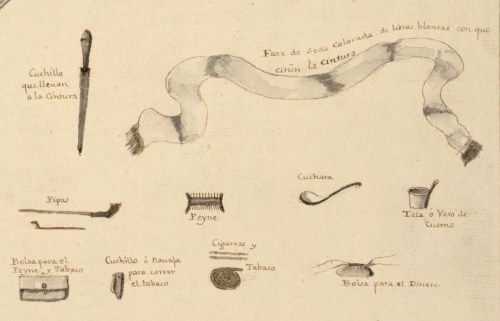 Cuchillo
que llevan
a la Cintura
Faxa de Seda Colorada de listas blancas con que
ciñen la Cintura
Pipas
Peyne
Cuchara
Taza ó Vaso de
Cuerno
Bolsa para el
Peyne, y Tabaco
Cuchillo ó Navaja
para cortar
el tabaco
Cigarros y
Tabaco
Bolsa para el Dinero.